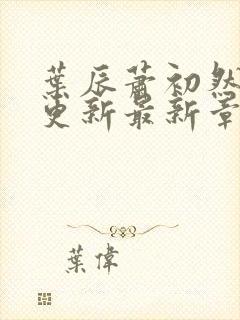 葉辰蕭初然
更新最新章
葉偉